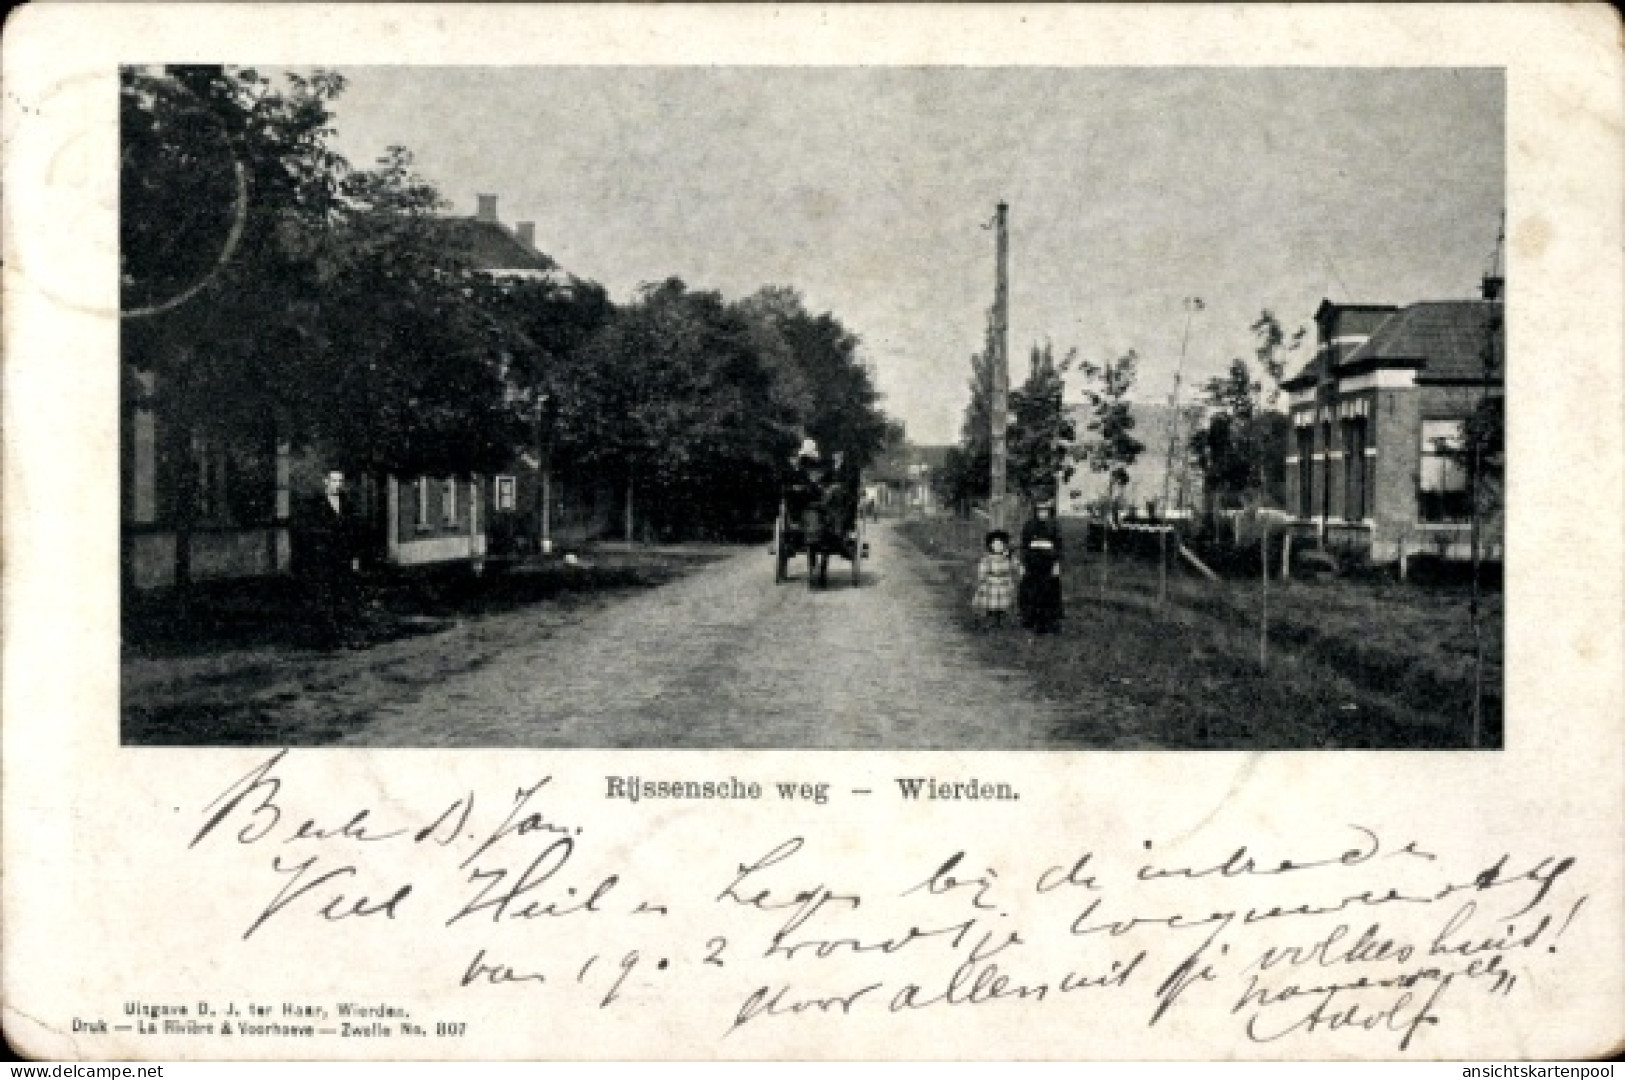 Rijssensche weg — Wierden.
B. Jan.
Viel Heil en Zegen bij de intrede
van 19.2 wordt je toegewenscht
door allen uit je volkshuis!
Adolf
Uitgave D. J. ter Haar, Wierden.
Druk — La Rivière & Voorhoeve — Zwolle No. 807
delcampe.net
ansichtskartenpool